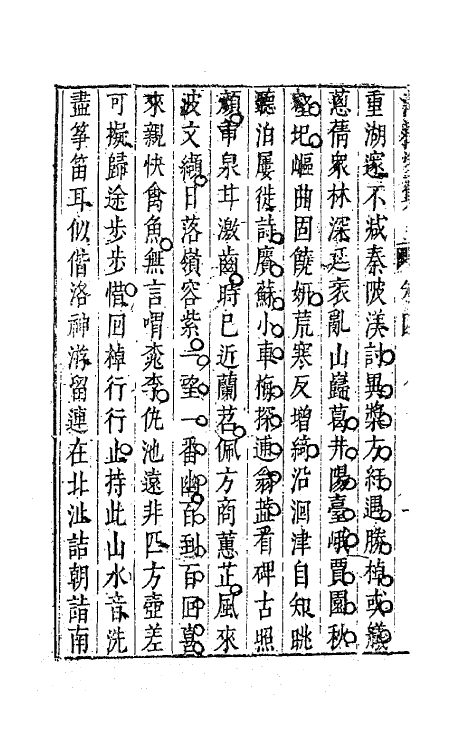 重湖邃不減秦陂渼討異槳方紆遇勝棹或艤
蔥蒨眾林深延袤亂山嶷葛井陽臺峨賈園秋
壑圮嶇曲固饒妍荒寒反增綺沿洄津自知眺
聽泊屢徙詩廣蘇小車梅探逋翁藍看碑古照
顏甫泉甘激齒時已近蘭苕佩方商蕙芷風來
波文纈日落嶺容紫一望一番幽百到百回喜
來親快禽魚無言喟桃李仇池遠非匹方壺差
可擬歸途步步惜回棹行行止持此山水音洗
盡箏笛耳似偕洛神游留連在北沚詰朝詣南